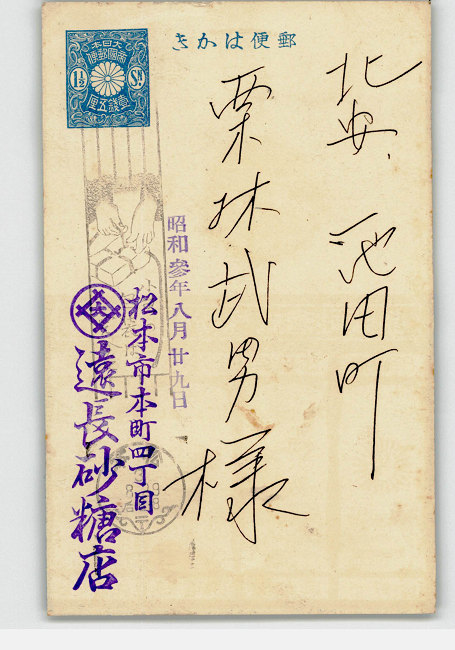 郵便はかき
大日本
帝國郵便
1½ Sn.
壹錢五厘
北安、池田町
栗林武男様
昭和參年八月廿九日
松本市本町四丁目
遠長砂糖店